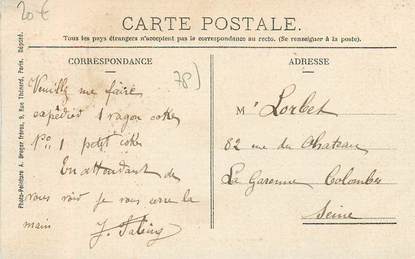 20€
CARTE POSTALE.
Tous les pays étrangers n'acceptent pas le correspondance au recto. (Se renseigner à la poste).
CORRESPONDANCE
78)
Veuillez me faire
expédier 1 wagon coke
No 1 petit coke
En attendant de
vous voir je vous serre la
main
ADRESSE
Mr Lorbet
82 rue du Chateau
La Garenne Colombes
Seine
Photo-Peinture A. Breger frères, 9, Rue Thénard, Paris. Déposé.